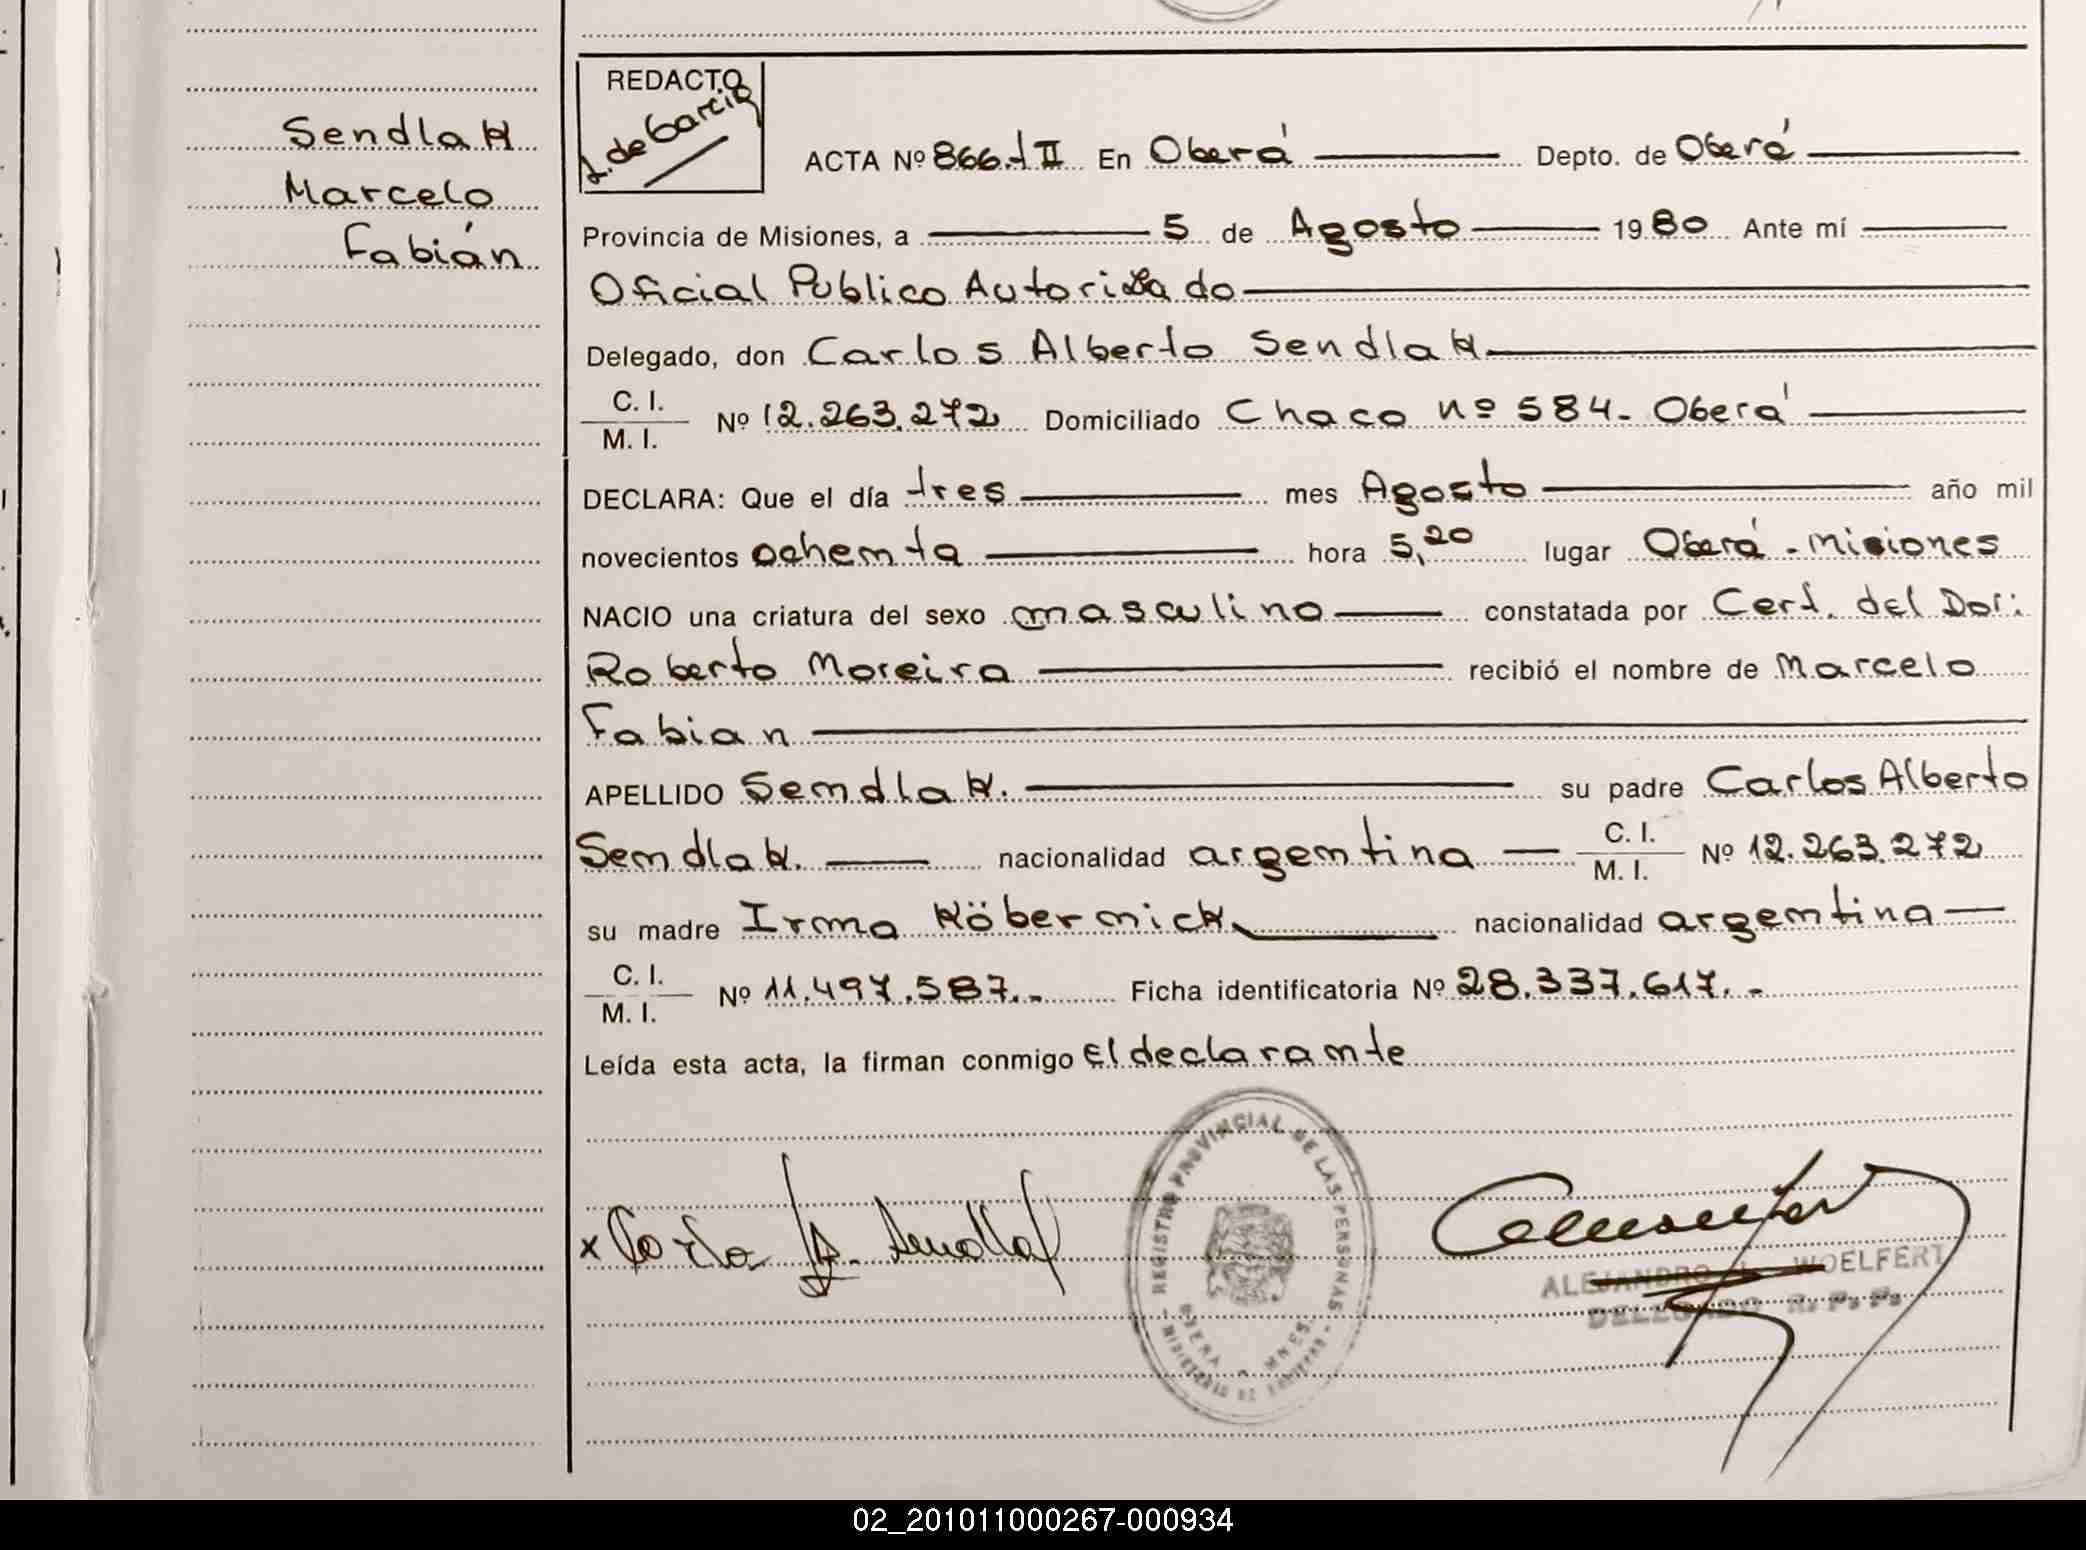 Sendlak
Marcelo
Fabián
REDACTO
J. de Garcia
ACTA Nº 866.-II En Oberá Depto. de Oberá
Provincia de Misiones, a 5 de Agosto 1980 Ante mí
Oficial Publico Autorizado
Delegado, don Carlos Alberto Sendlak
C. I.
M. I. Nº 12.263.272 Domiciliado Chaco nº 584 - Oberá
DECLARA: Que el día tres mes Agosto año mil
novecientos ochenta hora 5,20 lugar Oberá - Misiones
NACIO una criatura del sexo masculino constatada por Cert. del Dor:
Roberto Moreira recibió el nombre de Marcelo
Fabian
APELLIDO Sendlak. su padre Carlos Alberto
Sendlak. nacionalidad argentina C. I.
M. I. Nº 12.263.272
su madre Irma Köbernick nacionalidad argentina
C. I.
M. I. Nº 11.497.587.- Ficha identificatoria Nº 28.337.617.-
Leída esta acta, la firman conmigo El declarante
REGISTRO PROVINCIAL DE LAS PERSONAS
OBERA MNES.
MINISTERIO DE GOBIERNO
x Carlo A. Sendlak
ALEJANDRO WOELFERT
DELEGADO R. P. P.
02_201011000267-000934